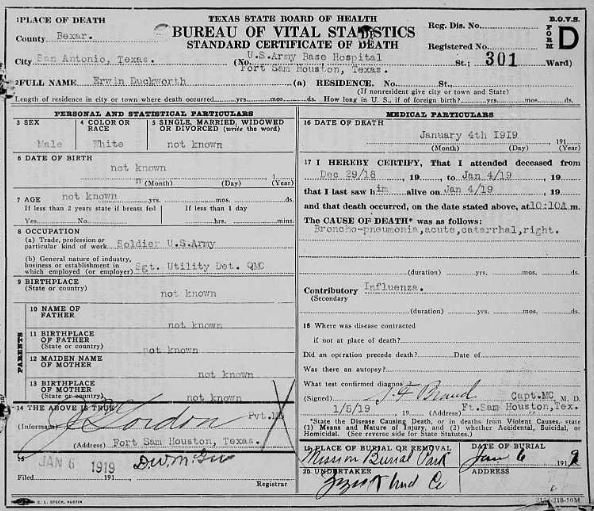 1 PLACE OF DEATH
TEXAS STATE BOARD OF HEALTH
B.O.V.S.
County Bexar.
BUREAU OF VITAL STATISTICS
Reg. Dis. No.
FORM D
STANDARD CERTIFICATE OF DEATH
Registered No.
City San Antonio, Texas. (No. U.S.Army Base Hospital St.; 301 Ward)
Fort Sam Houston, Texas.
2 FULL NAME Erwin Duckworth (a) RESIDENCE. No. St.
(If nonresident give city or town and State)
Length of residence in city or town where death occurred yrs. mos. ds. How long in U. S., if of foreign birth? yrs. mos. ds.
PERSONAL AND STATISTICAL PARTICULARS
3 SEX
4 COLOR OR RACE
5 SINGLE, MARRIED, WIDOWED OR DIVORCED (write the word)
Male White not known
6 DATE OF BIRTH
not known
(Month) (Day) (Year)
7 AGE not known
If less than 2 years state if breast fed If less than 1 day
Yes No hrs. mins.
8 OCCUPATION
(a) Trade, profession or
particular kind of work Soldier U.S.Army
(b) General nature of industry,
business or establishment in
which employed (or employer) Sgt. Utility Det. QMC
9 BIRTHPLACE
(State or country) not known
PARENTS
10 NAME OF
FATHER not known
11 BIRTHPLACE
OF FATHER
(State or country) not known
12 MAIDEN NAME
OF MOTHER not known
13 BIRTHPLACE
OF MOTHER
(State or country) not known
14 THE ABOVE IS TRUE
(Informant) Gordon Pvt.
(Address) Fort Sam Houston, Texas.
15
JAN 6 1919
Filed 191
Registrar
MEDICAL PARTICULARS
16 DATE OF DEATH
January 4th 1919 191
(Month) (Day) (Year)
17 I HEREBY CERTIFY, That I attended deceased from
Dec 29/18, 19 to Jan 4/19, 19
that I last saw him alive on Jan 4/19, 19
and that death occurred, on the date stated above, at 10:10A m.
The CAUSE OF DEATH* was as follows:
Broncho-pneumonia,acute,catarrhal,right.
(duration) yrs. mos. ds.
Contributory Influenza.
(Secondary
(duration) yrs. mos. ds.
18 Where was disease contracted
if not at place of death?
Did an operation precede death? Date of
Was there an autopsy?
What test confirmed diagnosis
(Signed) Capt.MC M. D.
1/5/19, 19 (Address) Ft.Sam Houston,Tex.
*State the Disease Causing Death, or in deaths from Violent Causes, state
(1) Means and Nature of Injury, and (2) whether Accidental, Suicidal, or
Homicidal. (See reverse side for State Statutes.)
19 PLACE OF BURIAL OR REMOVAL
DATE OF BURIAL
Mission Burial Park
Jan 6 191
20 UNDERTAKER
ADDRESS